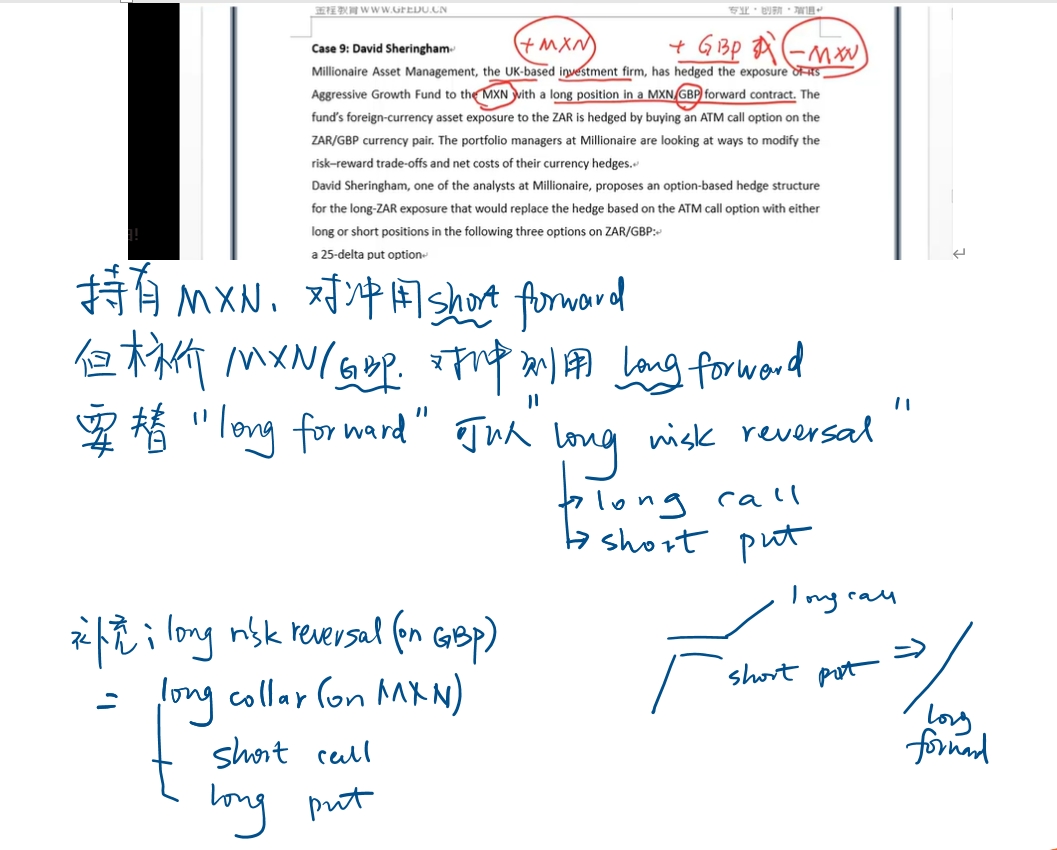 金程教育 WWW.GFEDU.CN 专业·创新·增值
+MXN + GBP 或 -MXN
Case 9: David Sheringham
Millionaire Asset Management, the UK-based investment firm, has hedged the exposure of its
Aggressive Growth Fund to the MXN with a long position in a MXN/GBP forward contract. The
fund's foreign-currency asset exposure to the ZAR is hedged by buying an ATM call option on the
ZAR/GBP currency pair. The portfolio managers at Millionaire are looking at ways to modify the
risk–reward trade-offs and net costs of their currency hedges.
David Sheringham, one of the analysts at Millionaire, proposes an option-based hedge structure
for the long-ZAR exposure that would replace the hedge based on the ATM call option with either
long or short positions in the following three options on ZAR/GBP:
a 25-delta put option
持有 MXN. 对冲用 short forward
但标价 MXN/GBP. 对冲则用 long forward
要替 "long forward" 可以 "long risk reversal"
long call
short put
long call
补充: long risk reversal (on GBP)
short put ⇒
= long collar (on MXN)
long
forward
short call
long put